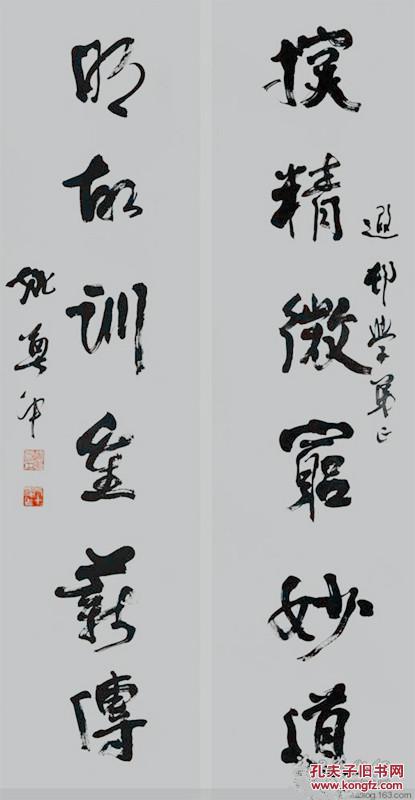 遐邨學弟正
探精微窮妙道
明故訓重薪傳
姚奠中
孔夫子旧书网
www.kongfz.com
blog.163.com